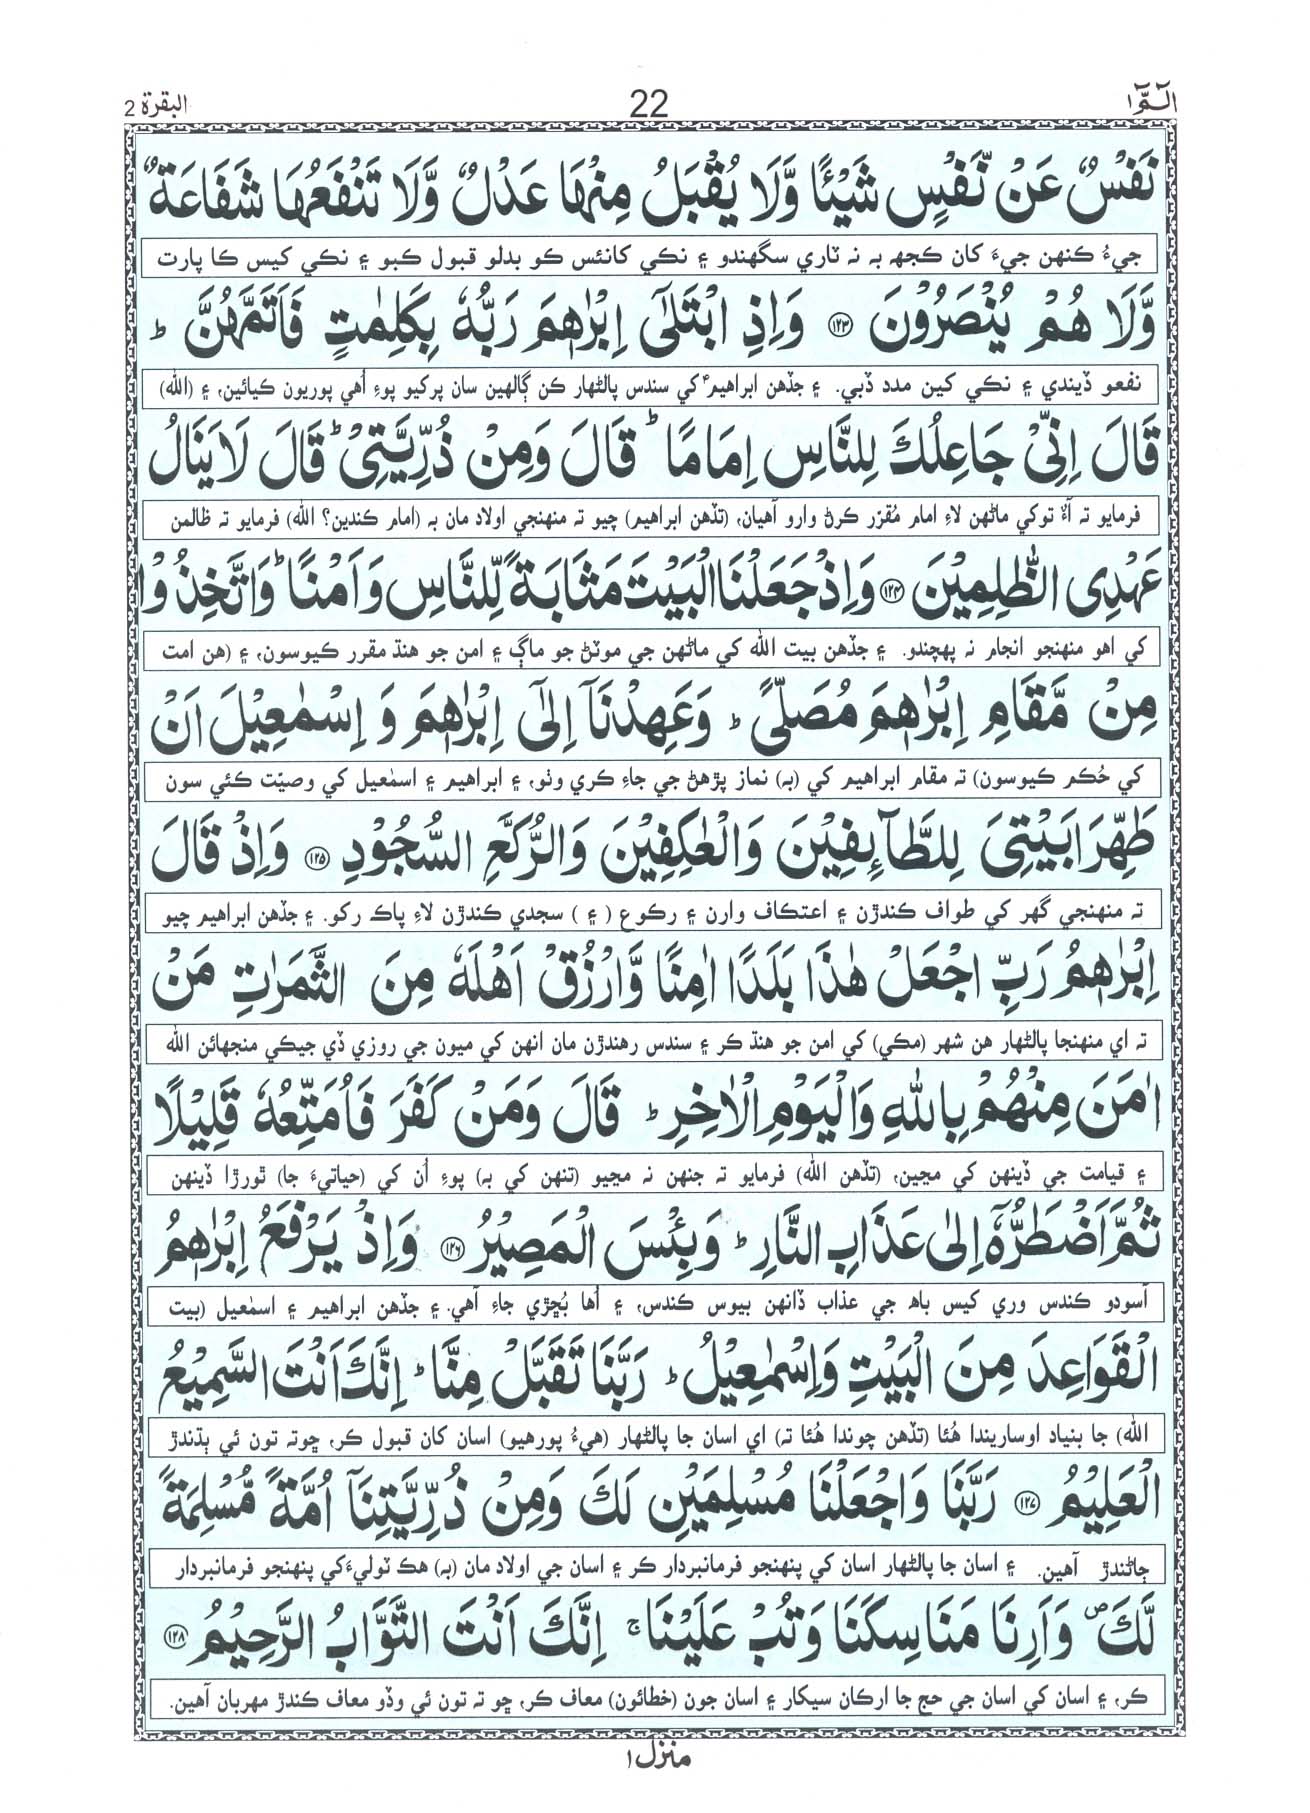 الٓمّٓ ١ 22 البقرة 2
نَفْسٌ عَنْ نَّفْسٍ شَيْـًٔا وَّلَا يُقْبَلُ مِنْهَا عَدْلٌ وَّلَا تَنْفَعُهَا شَفَاعَةٌ
جيءُ ڪنهن جيءَ کان ڪجهہ بہ نہ ٽاري سگهندو ۽ نڪي کانئس ڪو بدلو قبول ڪبو ۽ نڪي کيس ڪا پارت
وَّلَا هُمْ يُنْصَرُوْنَ ﴿۱۲۳﴾ وَاِذِ ابْتَلٰٓى اِبْرٰهٖمَ رَبُّهٗ بِكَلِمٰتٍ فَاَتَمَّهُنَّ ؕ
نفعو ڏيندي ۽ نڪي کين مدد ڏبي. ۽ جڏهن ابراهيمؑ کي سندس پالڻهار ڪن ڳالهين سان پرکيو پوءِ اُهي پوريون ڪيائين، ۽ (الله)
قَالَ اِنِّىْ جَاعِلُكَ لِلنَّاسِ اِمَامًا ؕ قَالَ وَمِنْ ذُرِّيَّتِىْ ؕ قَالَ لَا يَنَالُ
فرمايو تہ آءٌ توکي ماڻهن لاءِ امام مُقرّر ڪرڻ وارو آهيان، (تڏهن ابراهيم) چيو تہ منهنجي اولاد مان بہ (امام ڪندين؟ الله) فرمايو تہ ظالمن
عَهْدِى الظّٰلِمِيْنَ ﴿۱۲۴﴾ وَاِذْ جَعَلْنَا الْبَيْتَ مَثَابَةً لِّلنَّاسِ وَاَمْنًا ؕ وَاتَّخِذُوْا
کي اهو منهنجو انجام نہ پهچندو. ۽ جڏهن بيت الله کي ماڻهن جي موٽڻ جو ماڳ ۽ امن جو هنڌ مقرر ڪيوسون، ۽ (هن امت
مِنْ مَّقَامِ اِبْرٰهٖمَ مُصَلًّى ؕ وَعَهِدْنَآ اِلٰٓى اِبْرٰهٖمَ وَ اِسْمٰعِيْلَ اَنْ
کي حُڪم ڪيوسون) تہ مقام ابراهيم کي (بہ) نماز پڙهڻ جي جاءِ ڪري وٺو، ۽ ابراهيم ۽ اسمٰعيل کي وصيّت ڪئي سون
طَهِّرَا بَيْتِىَ لِلطَّآئِفِيْنَ وَالْعٰكِفِيْنَ وَالرُّكَّعِ السُّجُوْدِ ﴿۱۲۵﴾ وَاِذْ قَالَ
تہ منهنجي گهر کي طواف ڪندڙن ۽ اعتڪاف وارن ۽ رڪوع ( ۽ ) سجدي ڪندڙن لاءِ پاڪ رکو. ۽ جڏهن ابراهيم چيو
اِبْرٰهٖمُ رَبِّ اجْعَلْ هٰذَا بَلَدًا اٰمِنًا وَّارْزُقْ اَهْلَهٗ مِنَ الثَّمَرٰتِ مَنْ
تہ اي منهنجا پالڻهار هن شهر (مڪي) کي امن جو هنڌ ڪر ۽ سندس رهندڙن مان انهن کي ميون جي روزي ڏي جيڪي منجهائن الله
اٰمَنَ مِنْهُمْ بِاللّٰهِ وَالْيَوْمِ الْاٰخِرِ ؕ قَالَ وَمَنْ كَفَرَ فَاُمَتِّعُهٗ قَلِيْلًا
۽ قيامت جي ڏينهن کي مڃين، (تڏهن الله) فرمايو تہ جنهن نہ مڃيو (تنهن کي بہ) پوءِ اُن کي (حياتيءَ جا) ٿورڙا ڏينهن
ثُمَّ اَضْطَرُّهٗٓ اِلٰى عَذَابِ النَّارِ ؕ وَبِئْسَ الْمَصِيْرُ ﴿۱۲۶﴾ وَاِذْ يَرْفَعُ اِبْرٰهٖمُ
آسودو ڪندس وري کيس باهہ جي عذاب ڏانهن بيوس ڪندس، ۽ اُها بُڇڙي جاءِ آهي. ۽ جڏهن ابراهيم ۽ اسمٰعيل (بيت
الْقَوَاعِدَ مِنَ الْبَيْتِ وَاِسْمٰعِيْلُ ؕ رَبَّنَا تَقَبَّلْ مِنَّا ؕ اِنَّكَ اَنْتَ السَّمِيْعُ
الله) جا بنياد اوساريندا هُئا (تڏهن چوندا هُئا تہ) اي اسان جا پالڻهار (هيءُ پورهيو) اسان کان قبول ڪر، ڇوتہ تون ئي ٻڌندڙ
الْعَلِيْمُ ﴿۱۲۷﴾ رَبَّنَا وَاجْعَلْنَا مُسْلِمَيْنِ لَكَ وَمِنْ ذُرِّيَّتِنَآ اُمَّةً مُّسْلِمَةً
ڄاڻندڙ آهين. ۽ اسان جا پالڻهار اسان کي پنهنجو فرمانبردار ڪر ۽ اسان جي اولاد مان (بہ) هڪ ٽوليءَ کي پنهنجو فرمانبردار
لَّكَ ۪ وَاَرِنَا مَنَاسِكَنَا وَتُبْ عَلَيْنَا ۚ اِنَّكَ اَنْتَ التَّوَّابُ الرَّحِيْمُ ﴿۱۲۸﴾
ڪر، ۽ اسان کي اسان جي حج جا ارڪان سيکار ۽ اسان جون (خطائون) معاف ڪر، ڇو تہ تون ئي وڏو معاف ڪندڙ مهربان آهين.
منزل ١